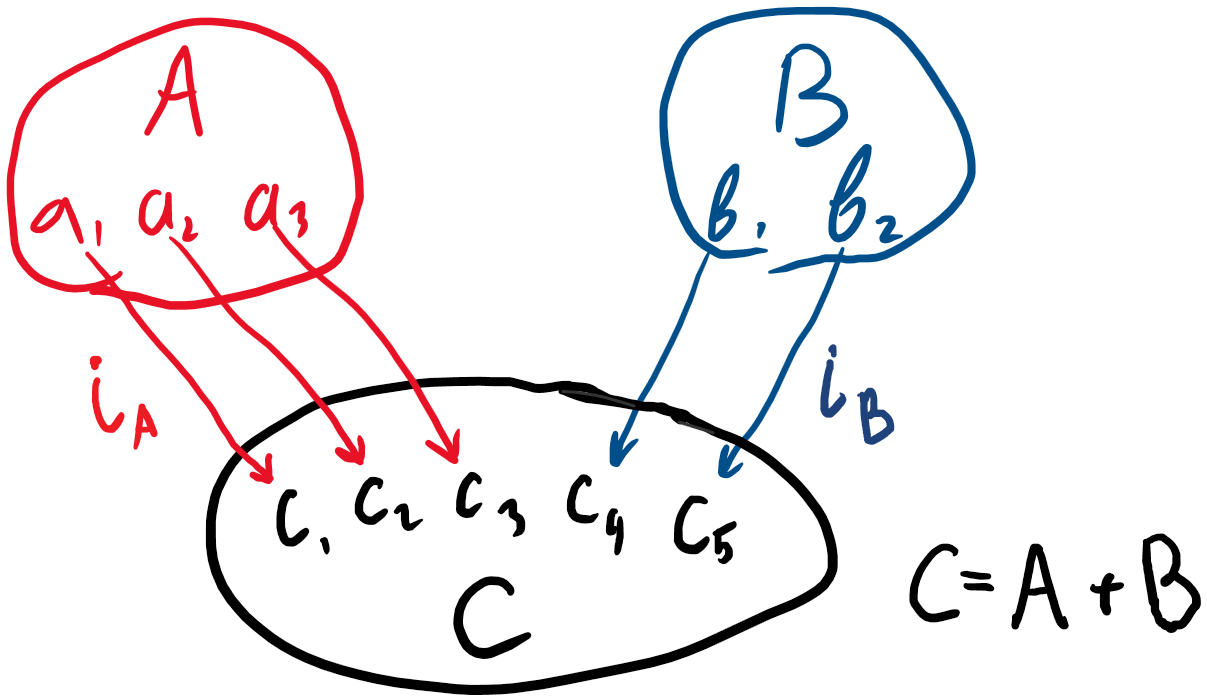 A B
a₁ a₂ a₃ b₁ b₂
i_A i_B
c₁ c₂ c₃ c₄ c₅
C
C=A+B